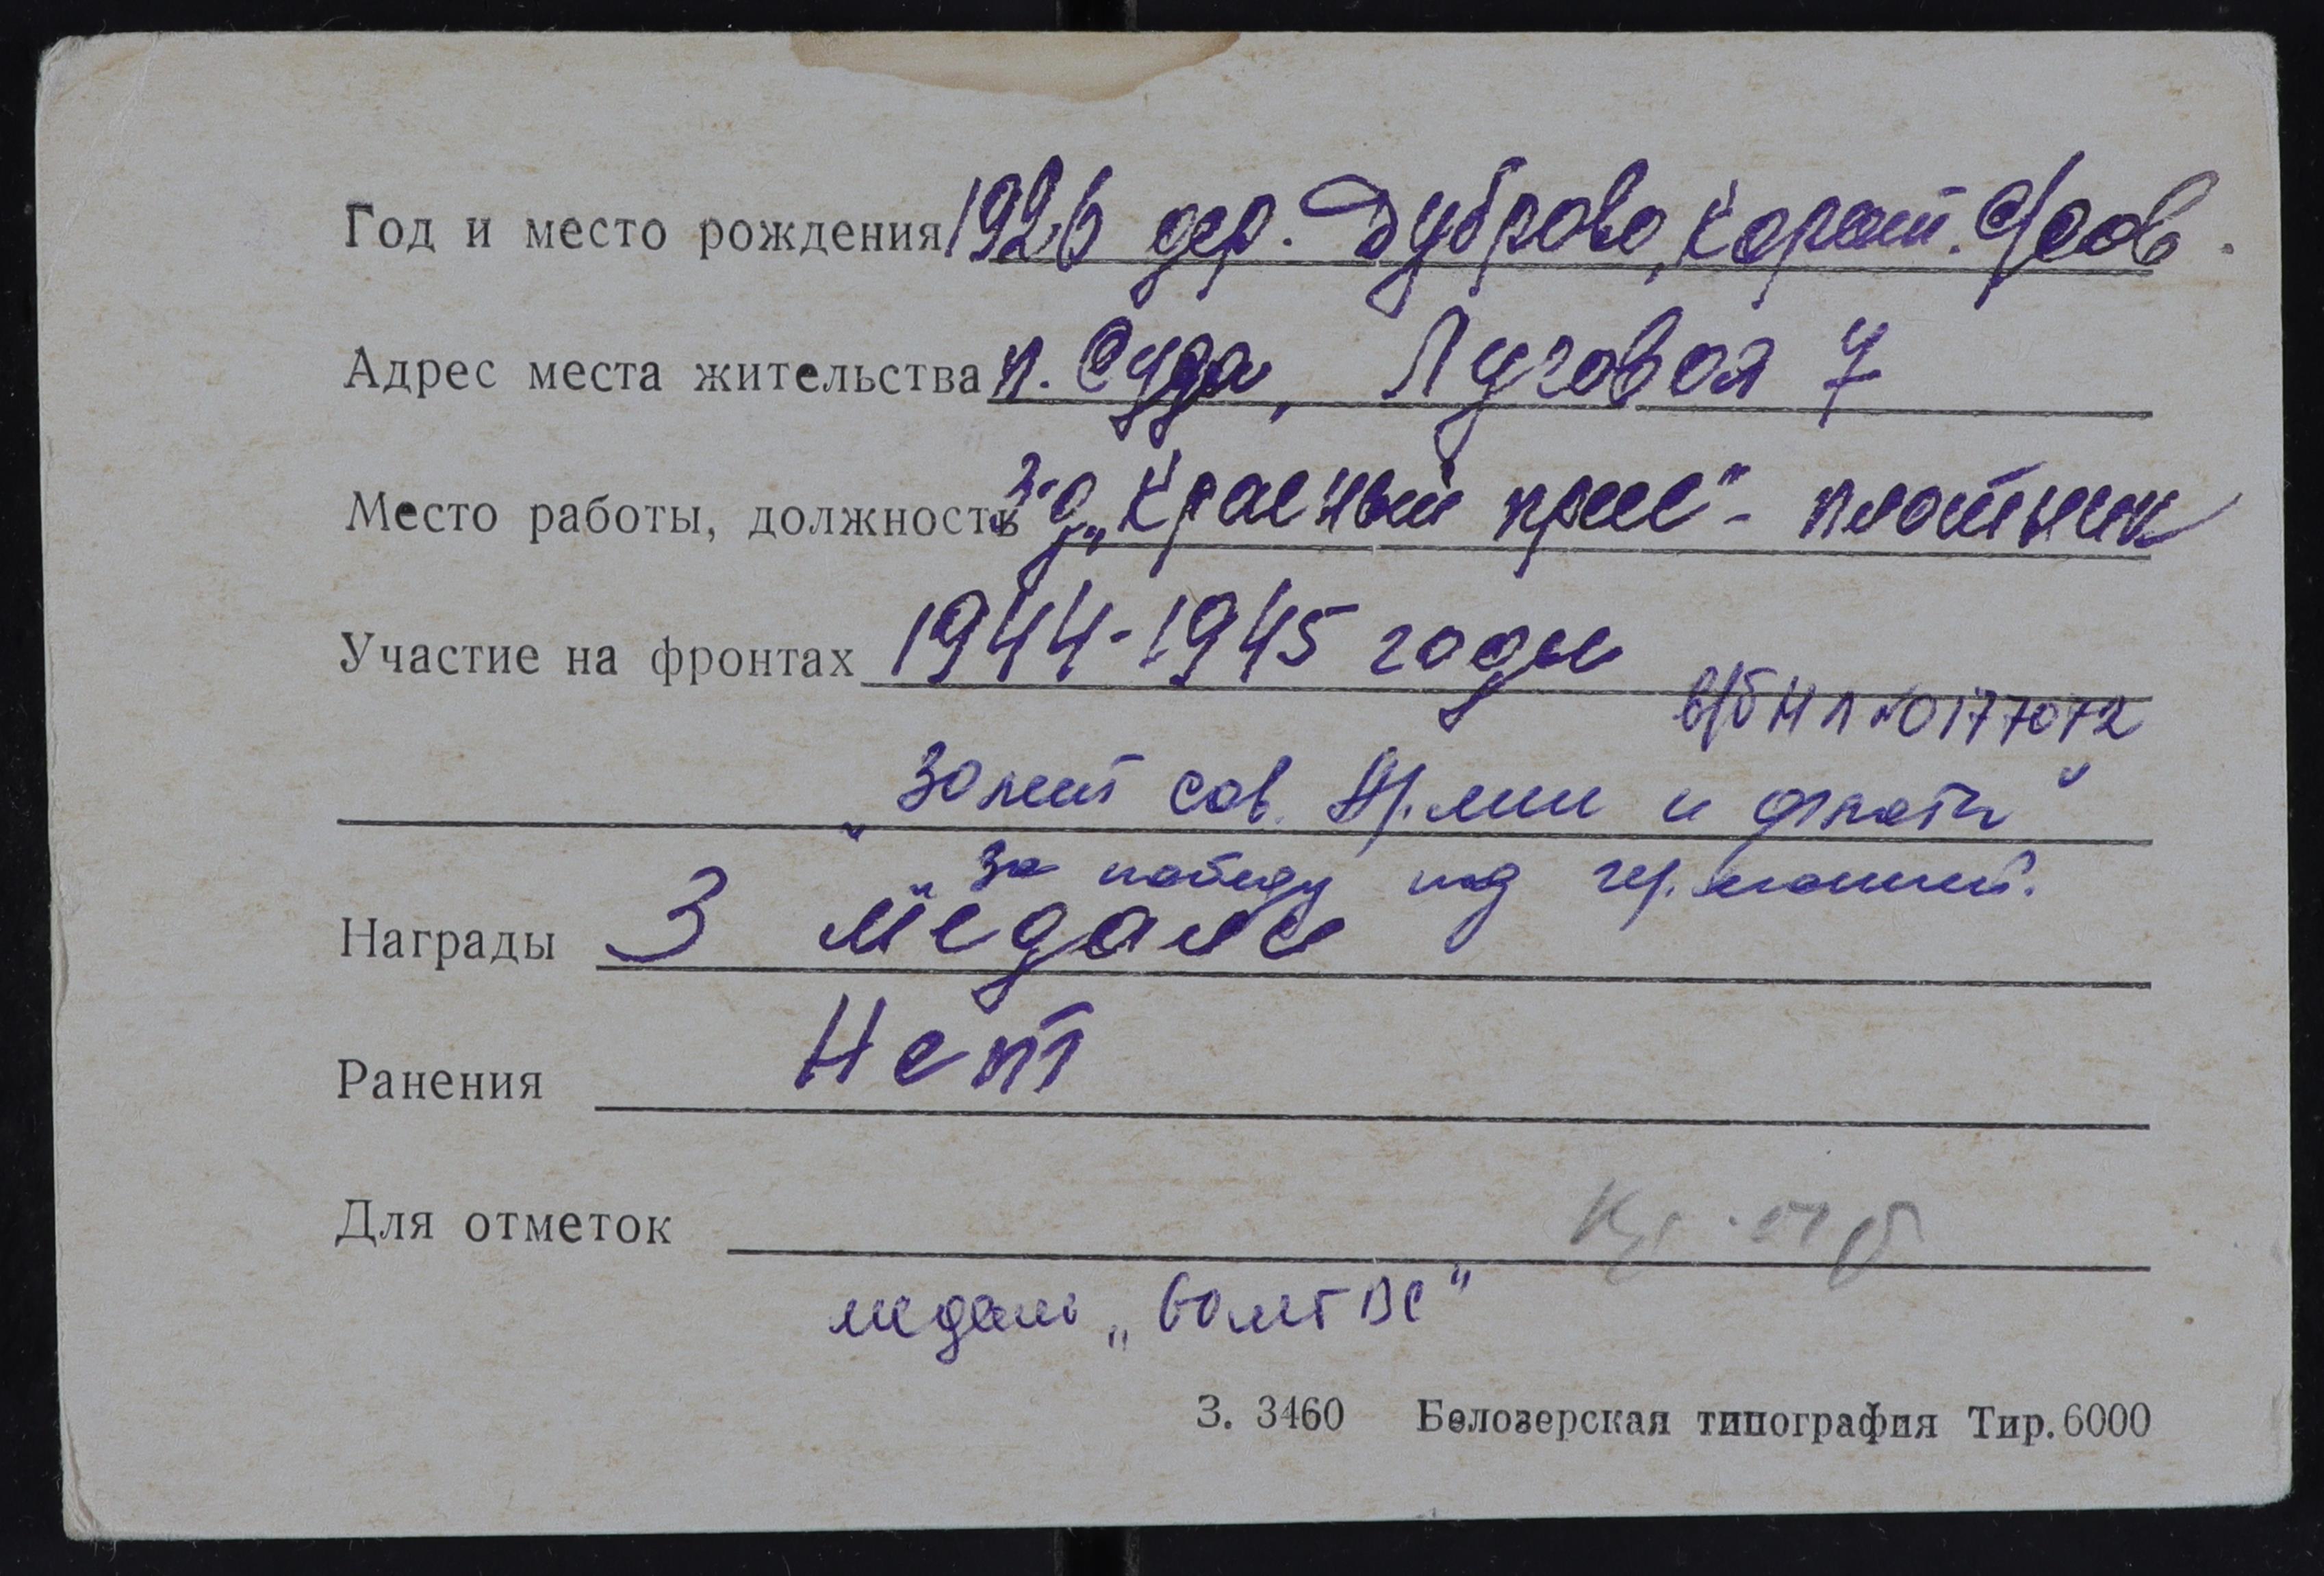 Год и место рождения 1926 дер. Дуброво, Корот. с/сов.
Адрес места жительства п. Суда, Луговая 7
Место работы, должность з-д „Красный прис“ - плотник
Участие на фронтах 1944-1945 годы
в/б НЛ №0177072
„30 лет сов. Армии и флота“
„за победу над германией.
Награды 3 медали
Ранения Нет
Для отметок
медаль „60 лет ВС“
З. 3460 Белозерская типография Тир. 6000